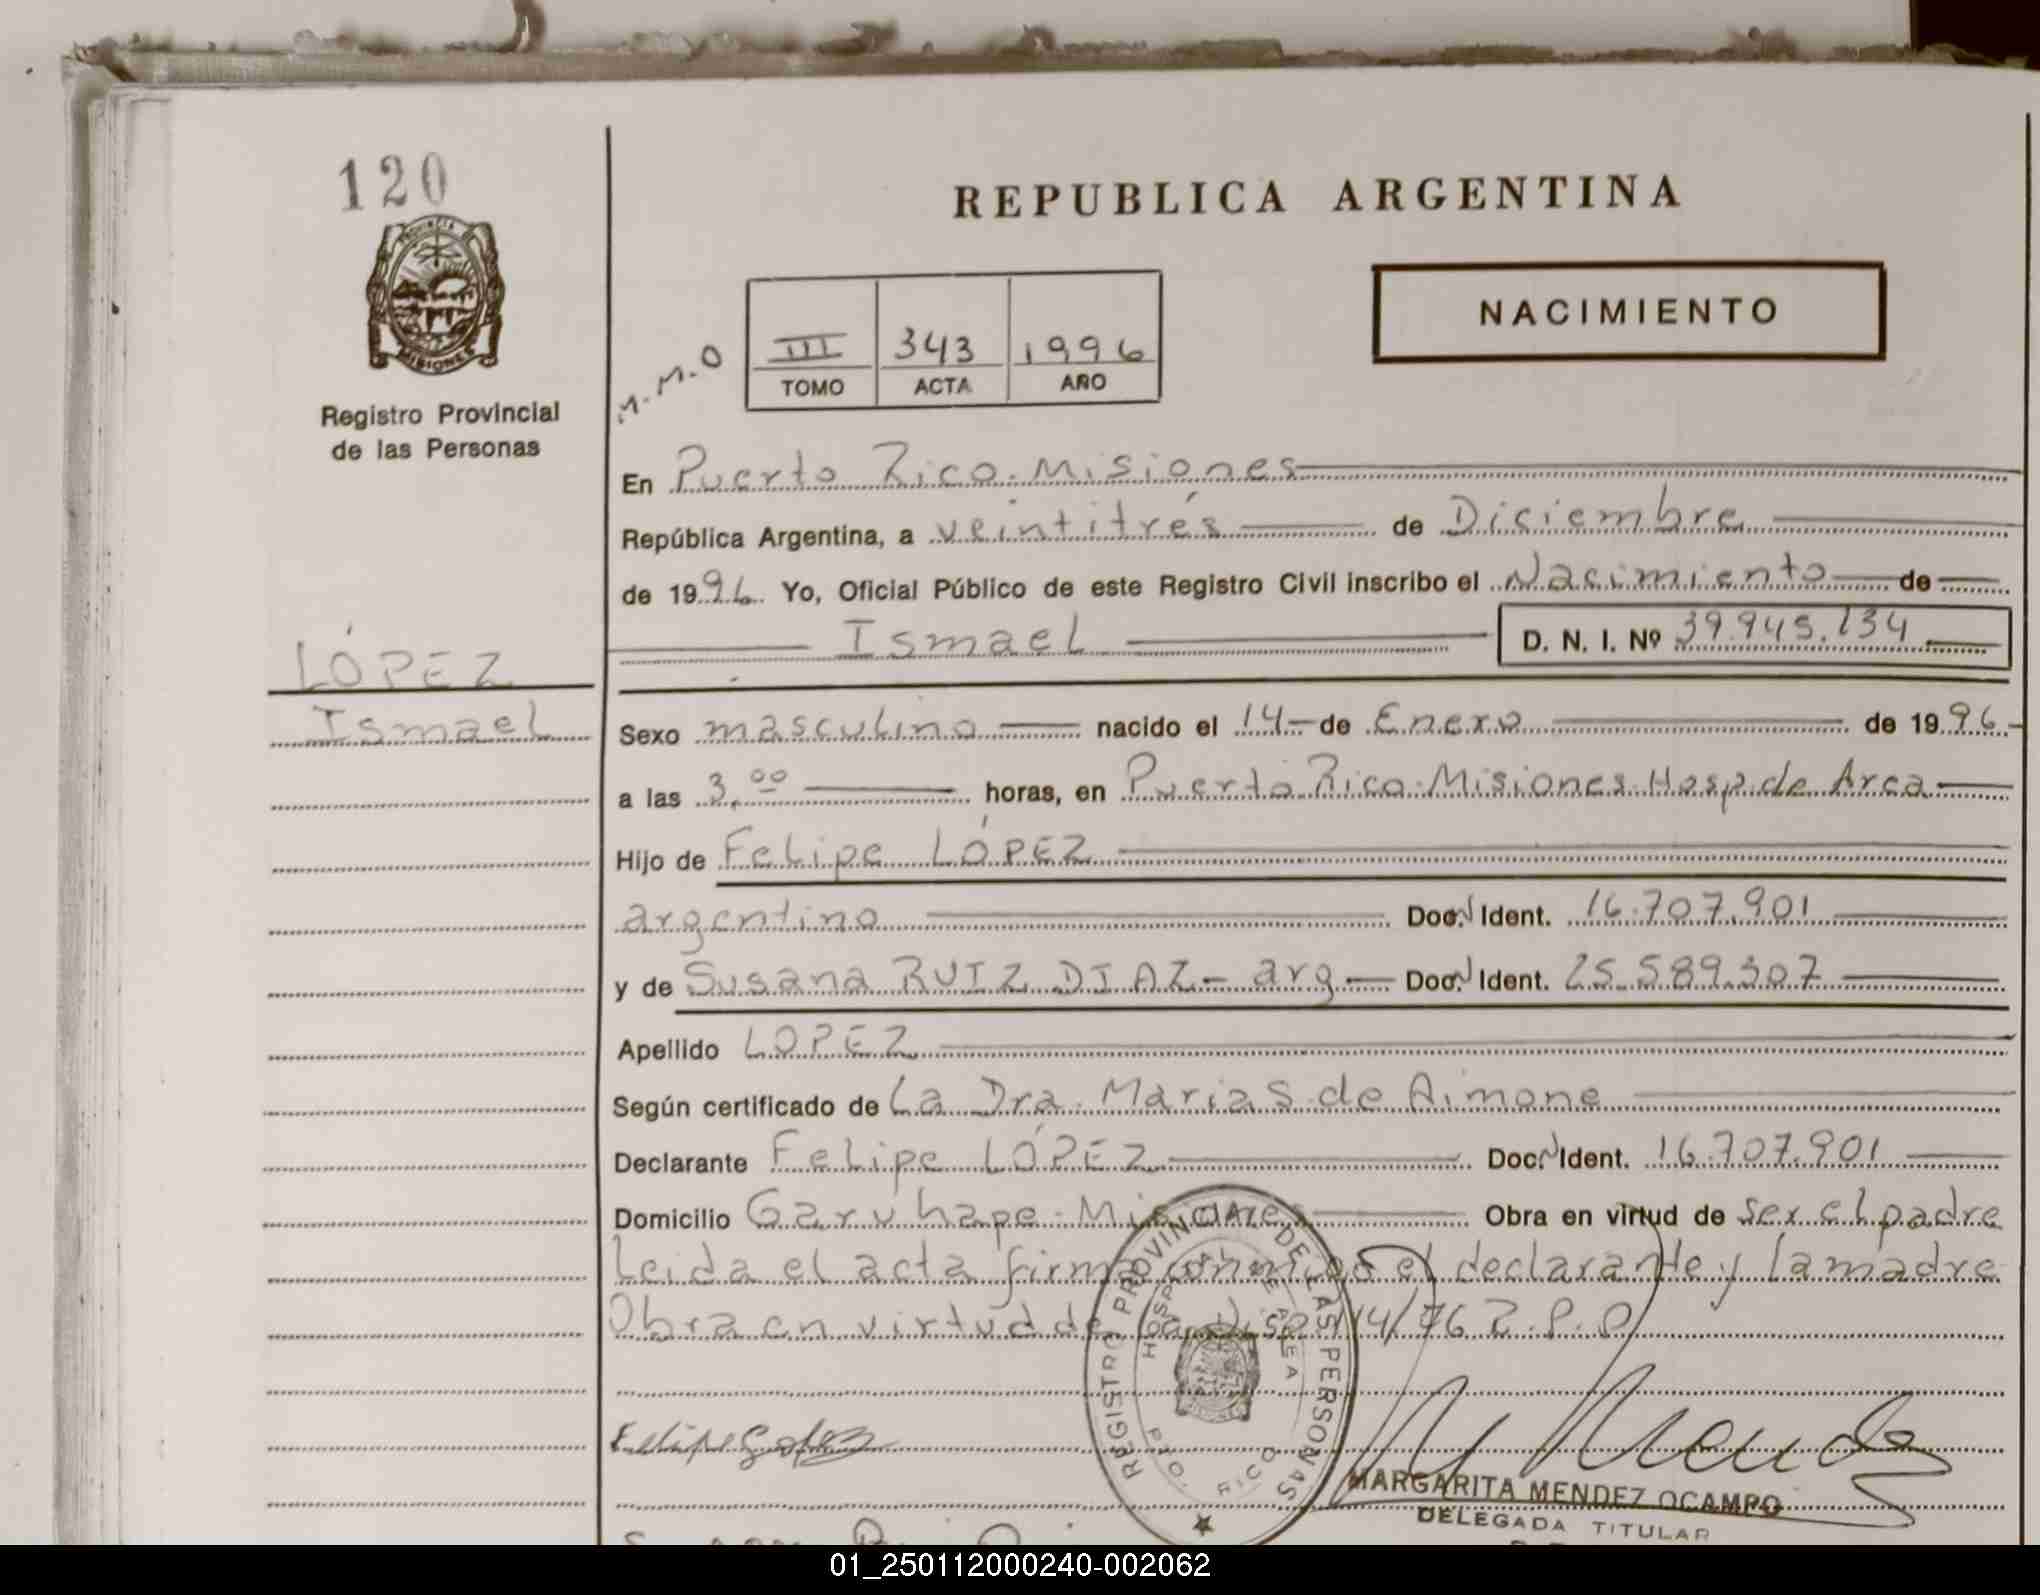 120
REPUBLICA ARGENTINA
PROVINCIA DE
MISIONES
Registro Provincial
de las Personas
NACIMIENTO
III 343 1996
TOMO ACTA AÑO
M.M.O
En Puerto Rico. Misiones
República Argentina, a veintitrés de Diciembre
de 1996. Yo, Oficial Público de este Registro Civil inscribo el Nacimiento de
Ismael D. N. I. Nº 39.945.134
LÓPEZ
Ismael
Sexo masculino nacido el 14 de Enero de 1996
a las 3,00 horas, en Puerto Rico. Misiones. Hosp. de Area
Hijo de Felipe LÓPEZ
argentino Doc. N Ident. 16.707.901
y de Susana RUIZ DIAZ - arg Doc. N Ident. 25.589.307
Apellido LOPEZ
Según certificado de La Dra. Maria S. de Aimone
Declarante Felipe LÓPEZ Doc. N Ident. 16.707.901
Domicilio Garuhape. Misiones Obra en virtud de ser el padre
Leida el acta firma conmigo el declarante y la madre
Obra en virtud de la Disp. 14/96 R.P.P
REGISTRO PROVINCIAL DE LAS PERSONAS
HOSPITAL DE AREA
PTO. RICO
Felipe Lopez
MARGARITA MENDEZ OCAMPO
DELEGADA TITULAR
01_250112000240-002062